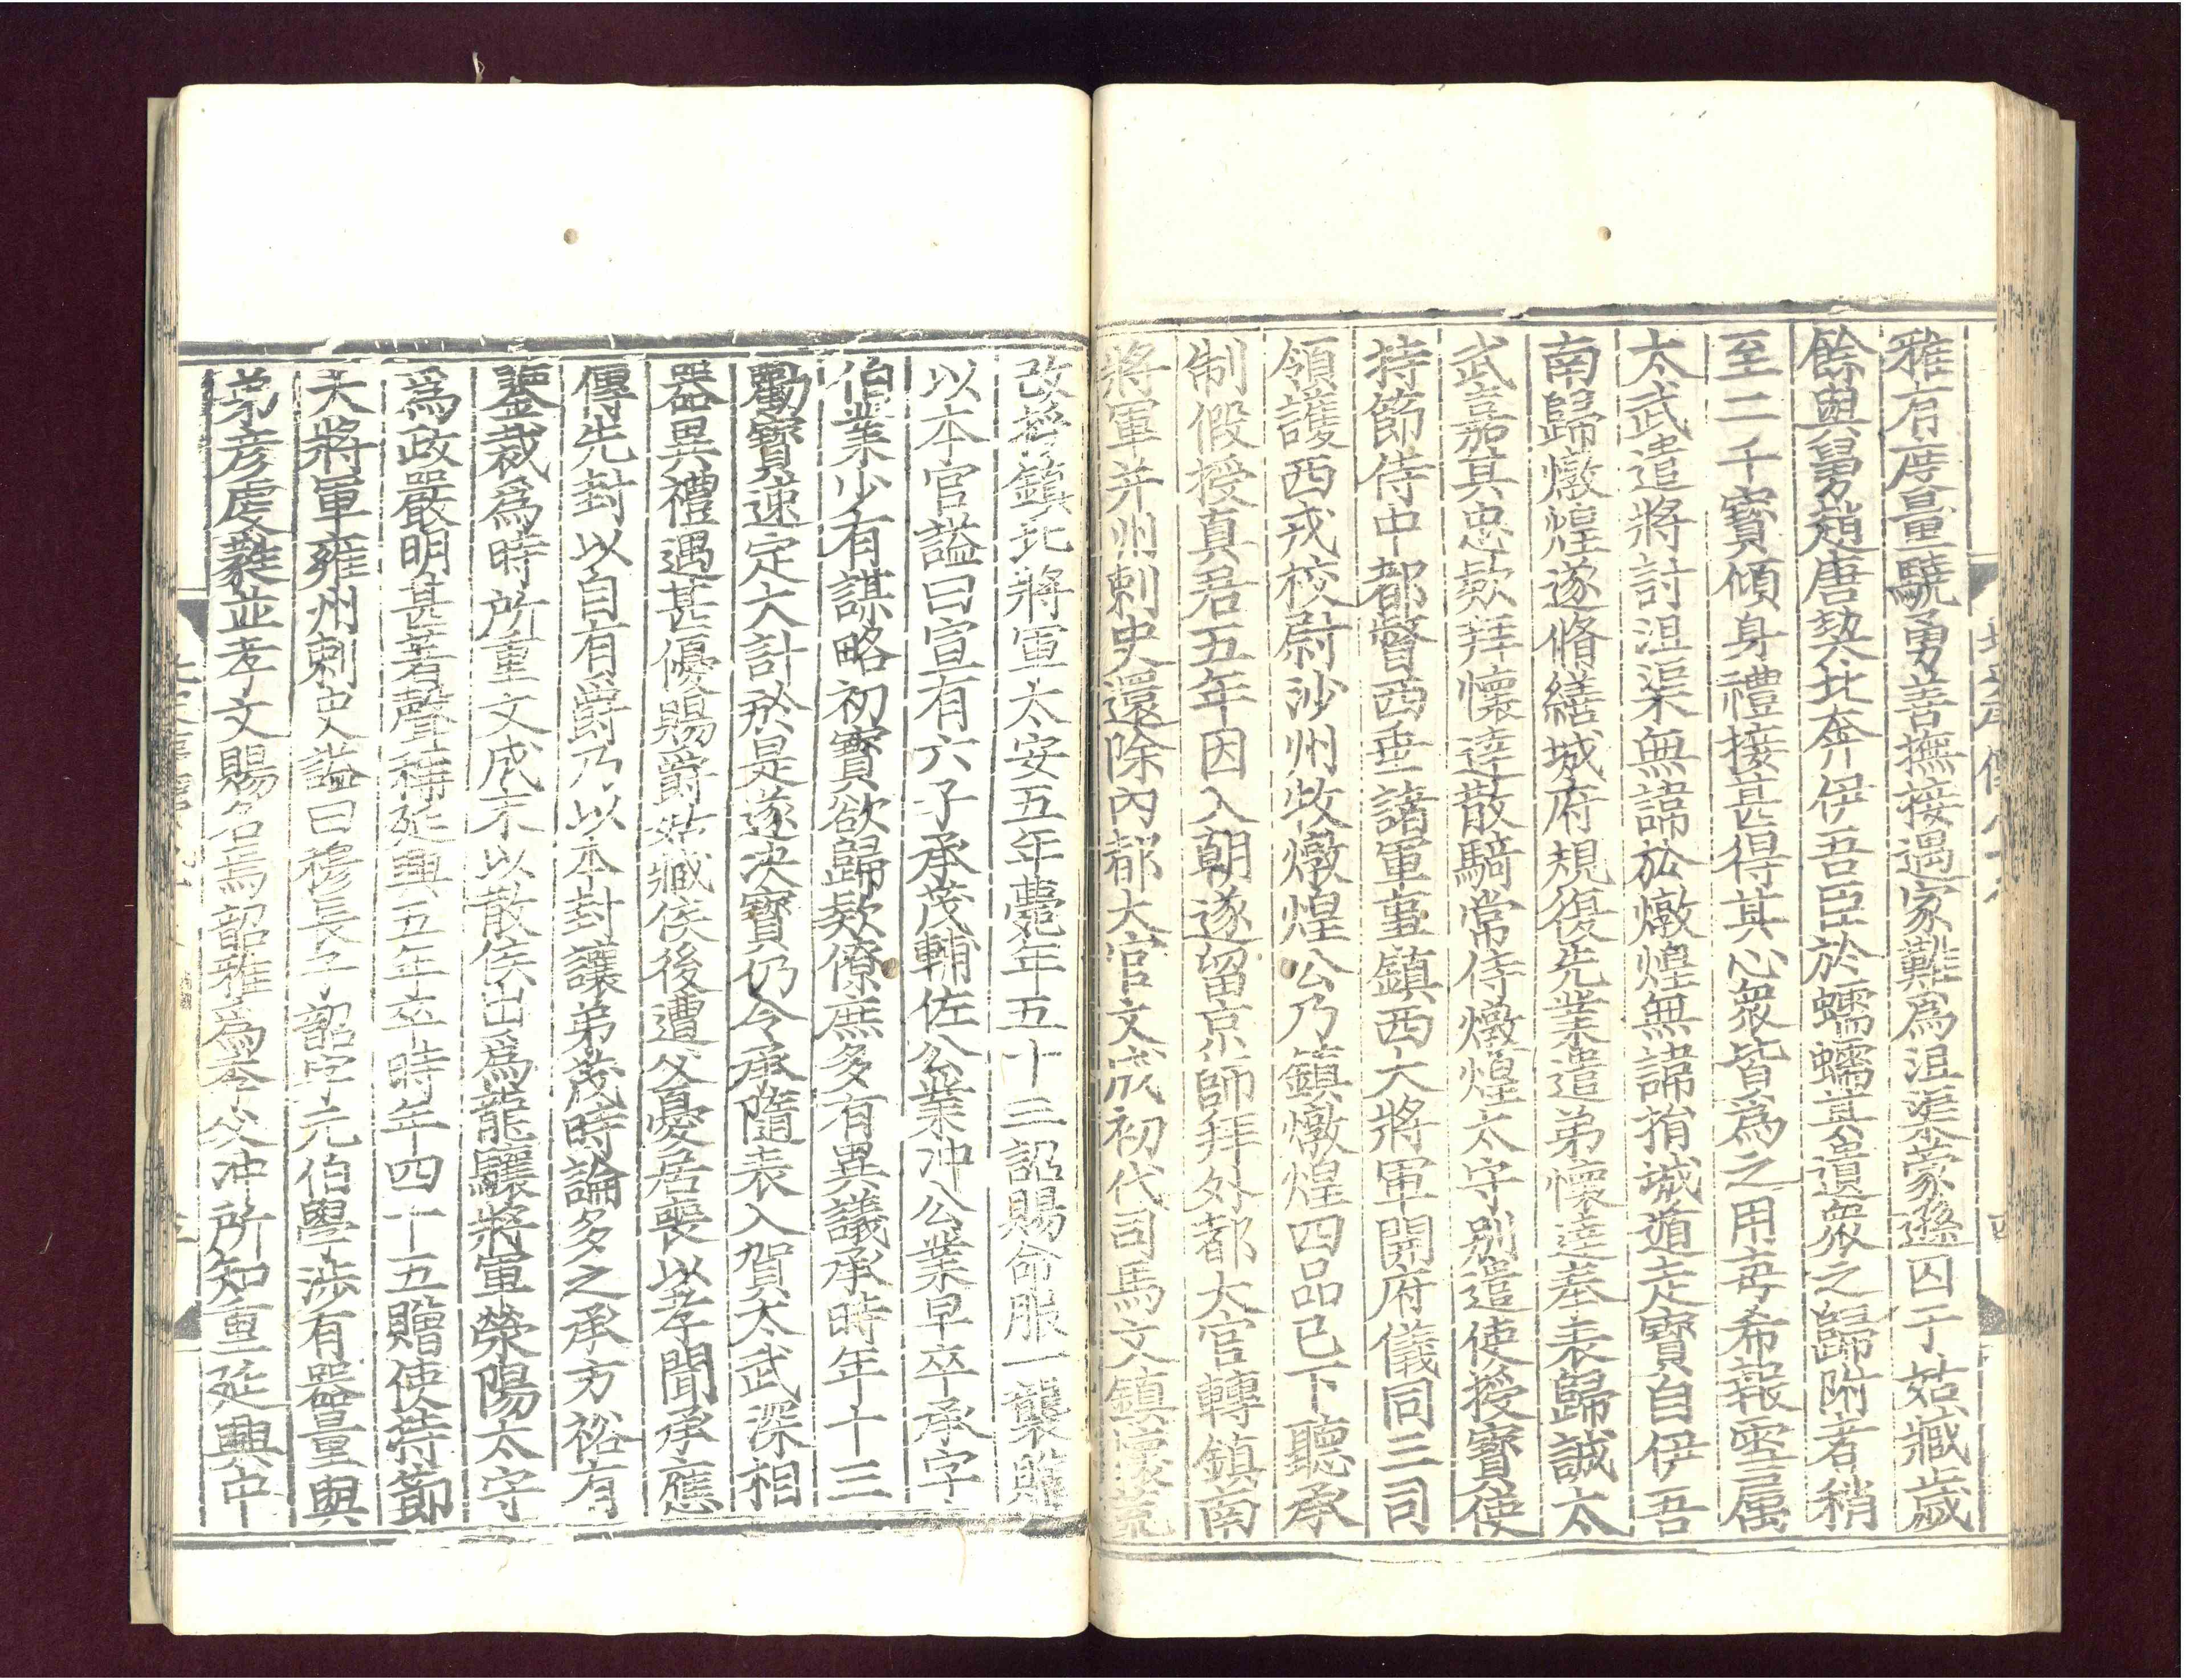 雅有度量驍勇善撫接遇家難爲沮渠蒙遜囚于姑臧歲
餘與舅趙唐契北奔伊吾臣於蠕蠕其遺衆之歸附者稍
至二千寶傾身禮接甚得其心衆皆爲之用每希報雪屬
太武遣將討沮渠無諱於燉煌無諱捐城遁走寶自伊吾
南歸燉煌遂脩繕城府規復先業遣弟懷達奉表歸誠太
武嘉其忠款拜懷達散騎常侍燉煌太守別遣使授寶使
持節侍中都督西垂諸軍事鎮西大將軍開府儀同三司
領護西戎校尉沙州牧燉煌公乃鎮燉煌四品已下聽承
制假授真君五年因入朝遂留京師拜外都大官轉鎮南
將軍并州刺史還除內都大官文成初代司馬文鎮懷荒
改授鎮北將軍太安五年薨年五十三詔賜命服一襲贈
以本官謚曰宣有六子承茂輔佐公業沖公業早卒承字
伯業少有謀略初寶欲歸款僚庶多有異議承時年十三
勸寶速定大計於是遂決寶仍令承隨表入賀太武深相
器異禮遇甚優賜爵姑臧侯後遭父憂居喪以孝聞承應
傳先封以自有爵乃以本封讓弟茂時論多之承方裕有
鑒裁爲時所重文成末以散侯出爲龍驤將軍滎陽太守
爲政嚴明甚著聲稱延興五年卒時年四十五贈使持節
大將軍雍州刺史謚曰穆長子韶字元伯學涉有器量與
弟彥虔蕤並孝文賜名焉韶雅爲季父沖所知重延興中